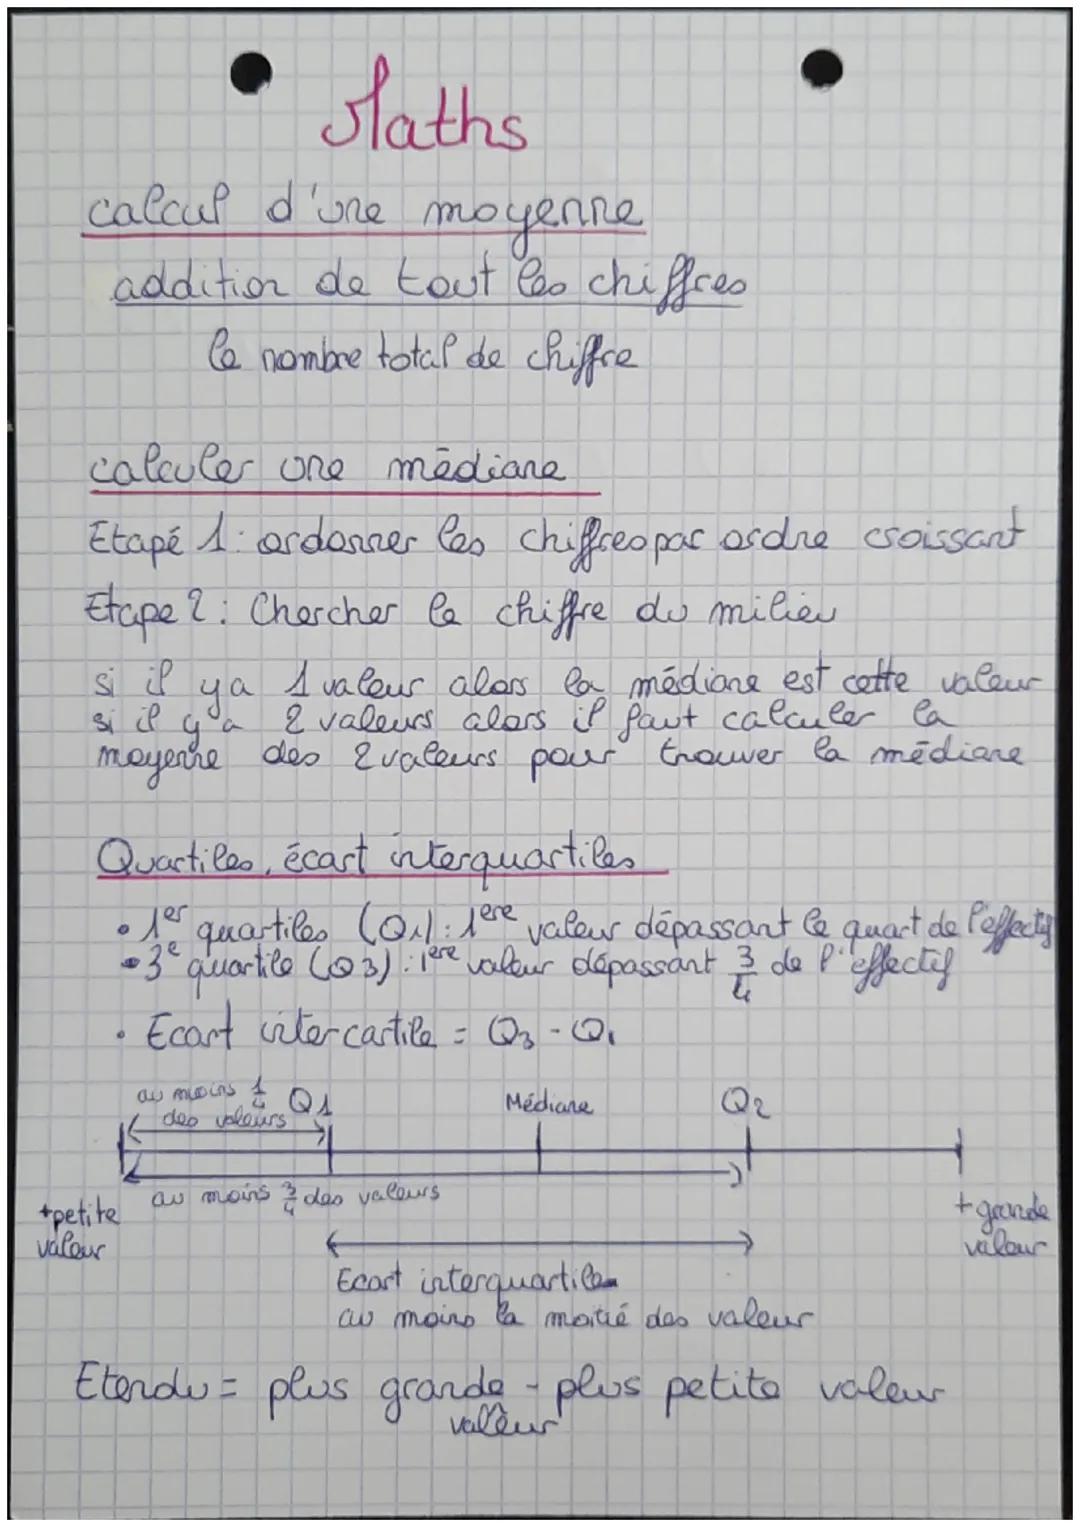 Maths
calcul d'une moyenne
addition de tout les chiffres
le nombre total de chiffre
calculer une médiane
Etapé 1 : ordonner les chiffres par ordre croissant
Etape 2 : Chercher le chiffre du milieu
si il y a 1 valeur alors la médiane est cette valeur
si il y a 2 valeurs alors il faut calculer la
moyenne des 2 valeurs pour trouver la médiane
Quartiles, écart interquartiles
• 1er quartiles (Q1) : 1ere valeur dépassant le quart de l'effectif
• 3e quartile (Q3) : 1ere valeur dépassant 3/4 de l'effectif
• Ecart intercartile = Q3 - Q1
au moins 1/4 des valeurs
Q1
Médiane
Q2
au moins 3/4 des valeurs
+petite
valeur
+ grande
valeur
Ecart interquartile
au moins la moitié des valeur
Etendu = plus grande valeur - plus petite valeur